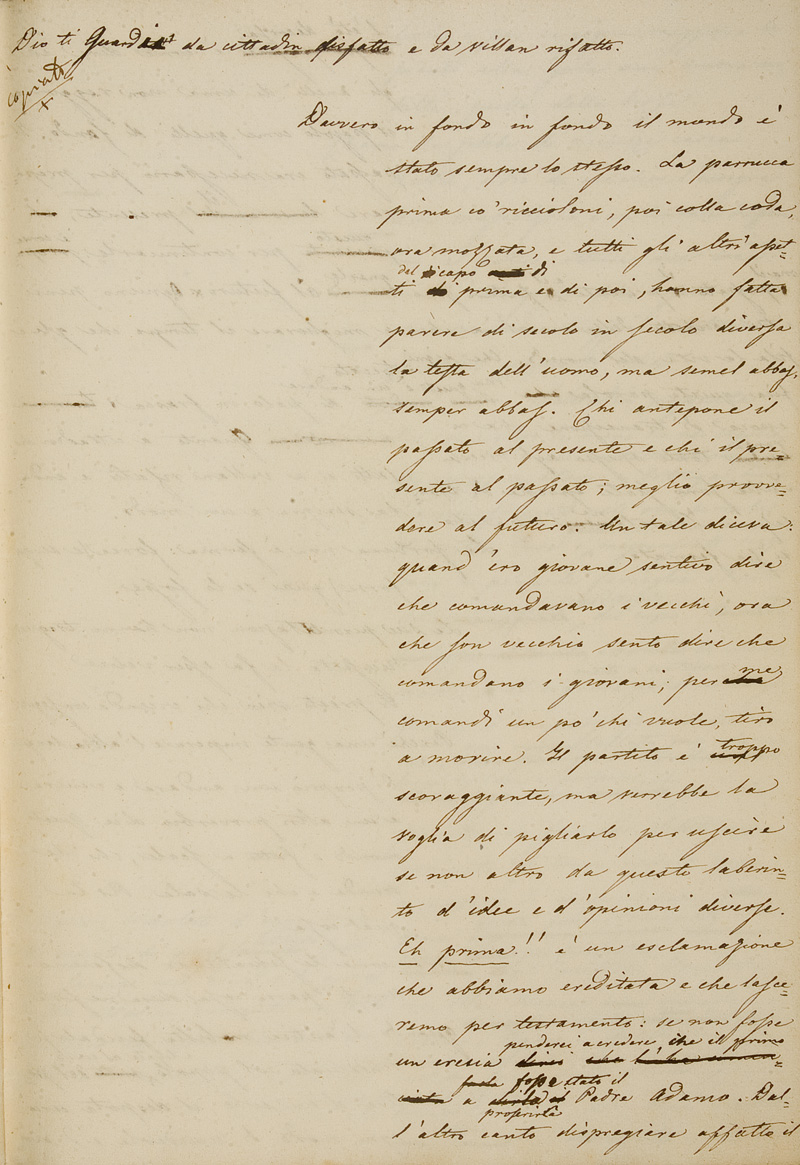 Dio ti Guardi da cittadin disfatto e da villan rifatto.
copiato
Davvero in fondo in fondo il mondo è
stato sempre lo stesso. La parrucca
prima co' riccioloni, poi colla coda,
ora mozzata, e tutti gli altri aspet=
dal capo di
ti di prima e di poi, hanno fatta
parere di secolo in secolo diversa
la testa dell'uomo, ma semel abbas,
semper abbas. Chi antepone il
passato al presente e chi il pre=
sente al passato; meglio provve=
dere al futuro. Un tale diceva:
quand'ero giovane sentivo dire
che comandavano i vecchi, ora
che son vecchio sento dire che
comandano i giovani; per me
comandi un po' chi vuole, tiro
a morire. Il partito è troppo
scoraggiante, ma verrebbe la
voglia di pigliarlo per uscire
se non altro da questo laberin=
to d'idee e d'opinioni diverse.
Eh prima!! è un esclamazione
che abbiamo ereditata e che lasce=
remo per testamento: se non fosse
penderei a credere, che il primo
un eresia direi che l'ha comin=
fosse stato il
ciata a dirla il Padre Adamo. Dal=
proferirla
l'altro canto dispregiare affatto il